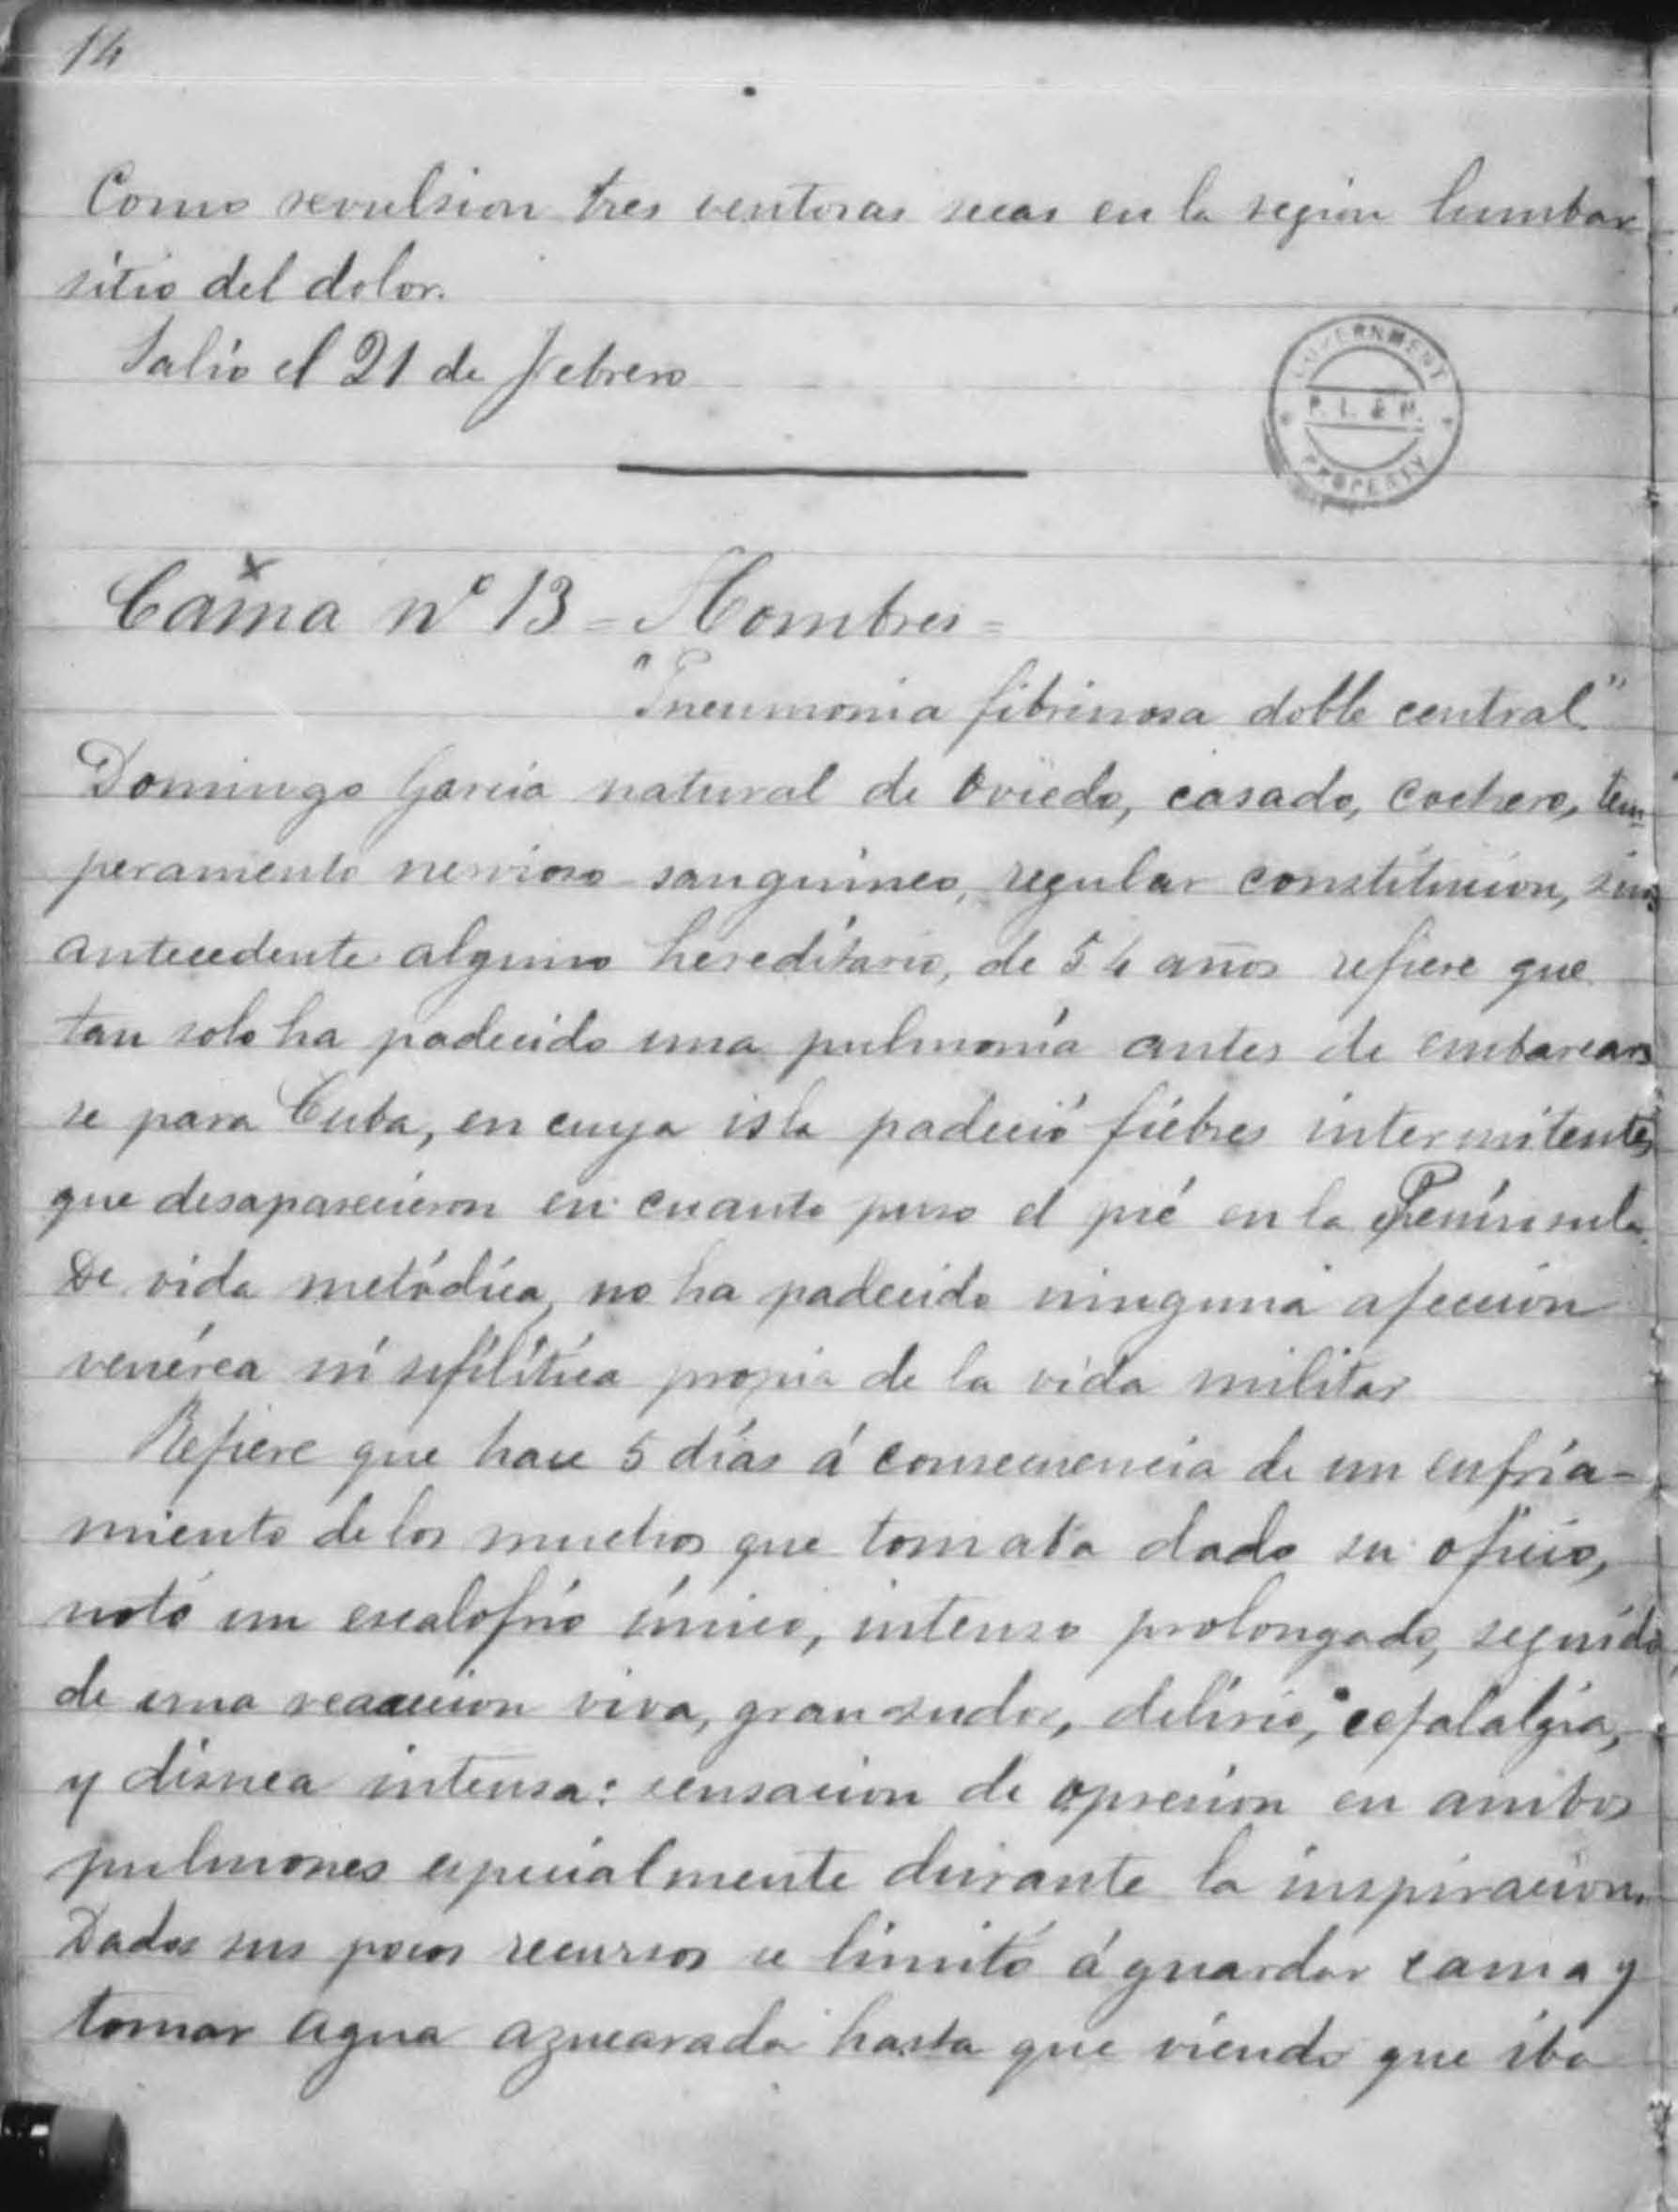 14
Como revulsion tres ventosas secas en la region lumbar
sitio del dolor.
Salió el 21 de Febrero
GOVERNMENT
P. L. & M.
PROPERTY
Cama nº 13 = Hombres =
"Pneumonia fibrinosa doble central"
Domingo García natural de Oviedo, casado, cochero, tem
peramento nervioso sanguineo, regular constitucion, sin
antecedente alguno hereditario, de 54 años refiere que
tan solo ha padecido una pulmonía antes de embarcar
se para Cuba, en cuya isla padeció fiébres intermitentes
que desaparecieron en cuanto puso el pié en la Península
De vida metódica, no ha padecido ninguna afeccion
venérea ni sifilítica propia de la vida militar
Refiere que hace 5 días á consecuencia de un enfria-
miento de los muchos que tomaba dado su oficio,
notó un escalofrio único, intenso prolongado, seguido
de una reaccion viva, gran sudor, delirio, cefalalgia,
y disnea intensa: sensacion de opresion en ambos
pulmones especialmente durante la inspiracion.
Dados sus pocos recursos se limitó á guardar cama y
tomar agua azucarada hasta que viendo que iba